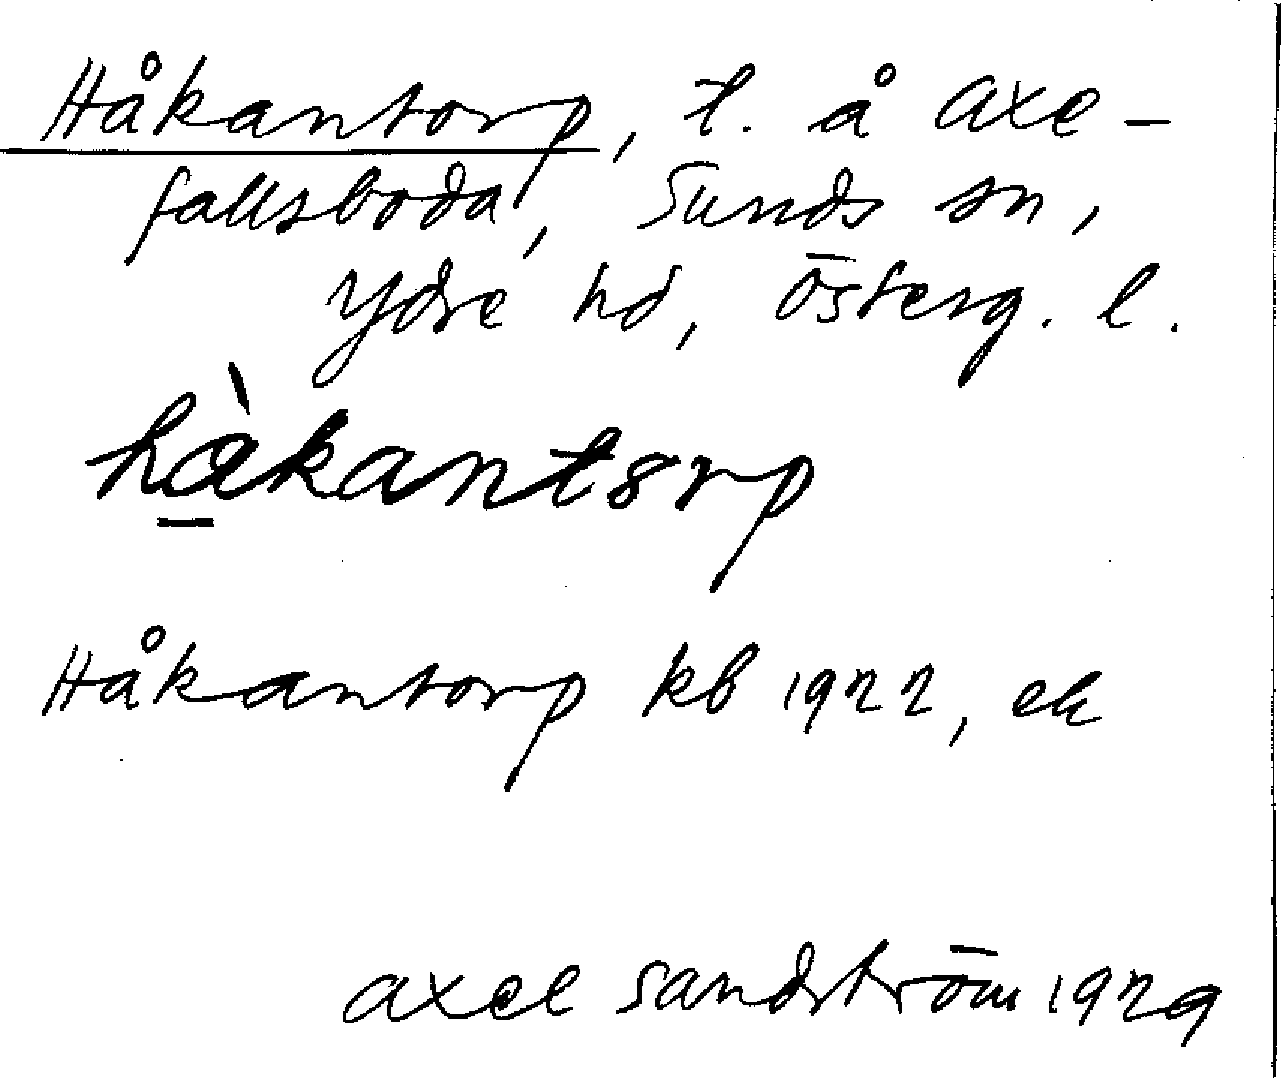 Håkantorp, t. å Axe-
fallsboda, Sunds sn,
Ydre hd, Österg. l.
hàkantorp
Håkantorp kb 1922, ek
Axel Sandström 1929